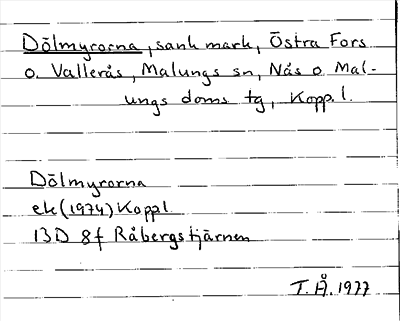 Dölmyrorna, sank mark, Östra Fors
o. Vallerås, Malungs sn, Nås o Mal-
ungs doms tg, Kopp. l.
Dölmyrorna
ek (1974) Koppl.
13D 8f Råbergstjärnen
T. Å. 1977